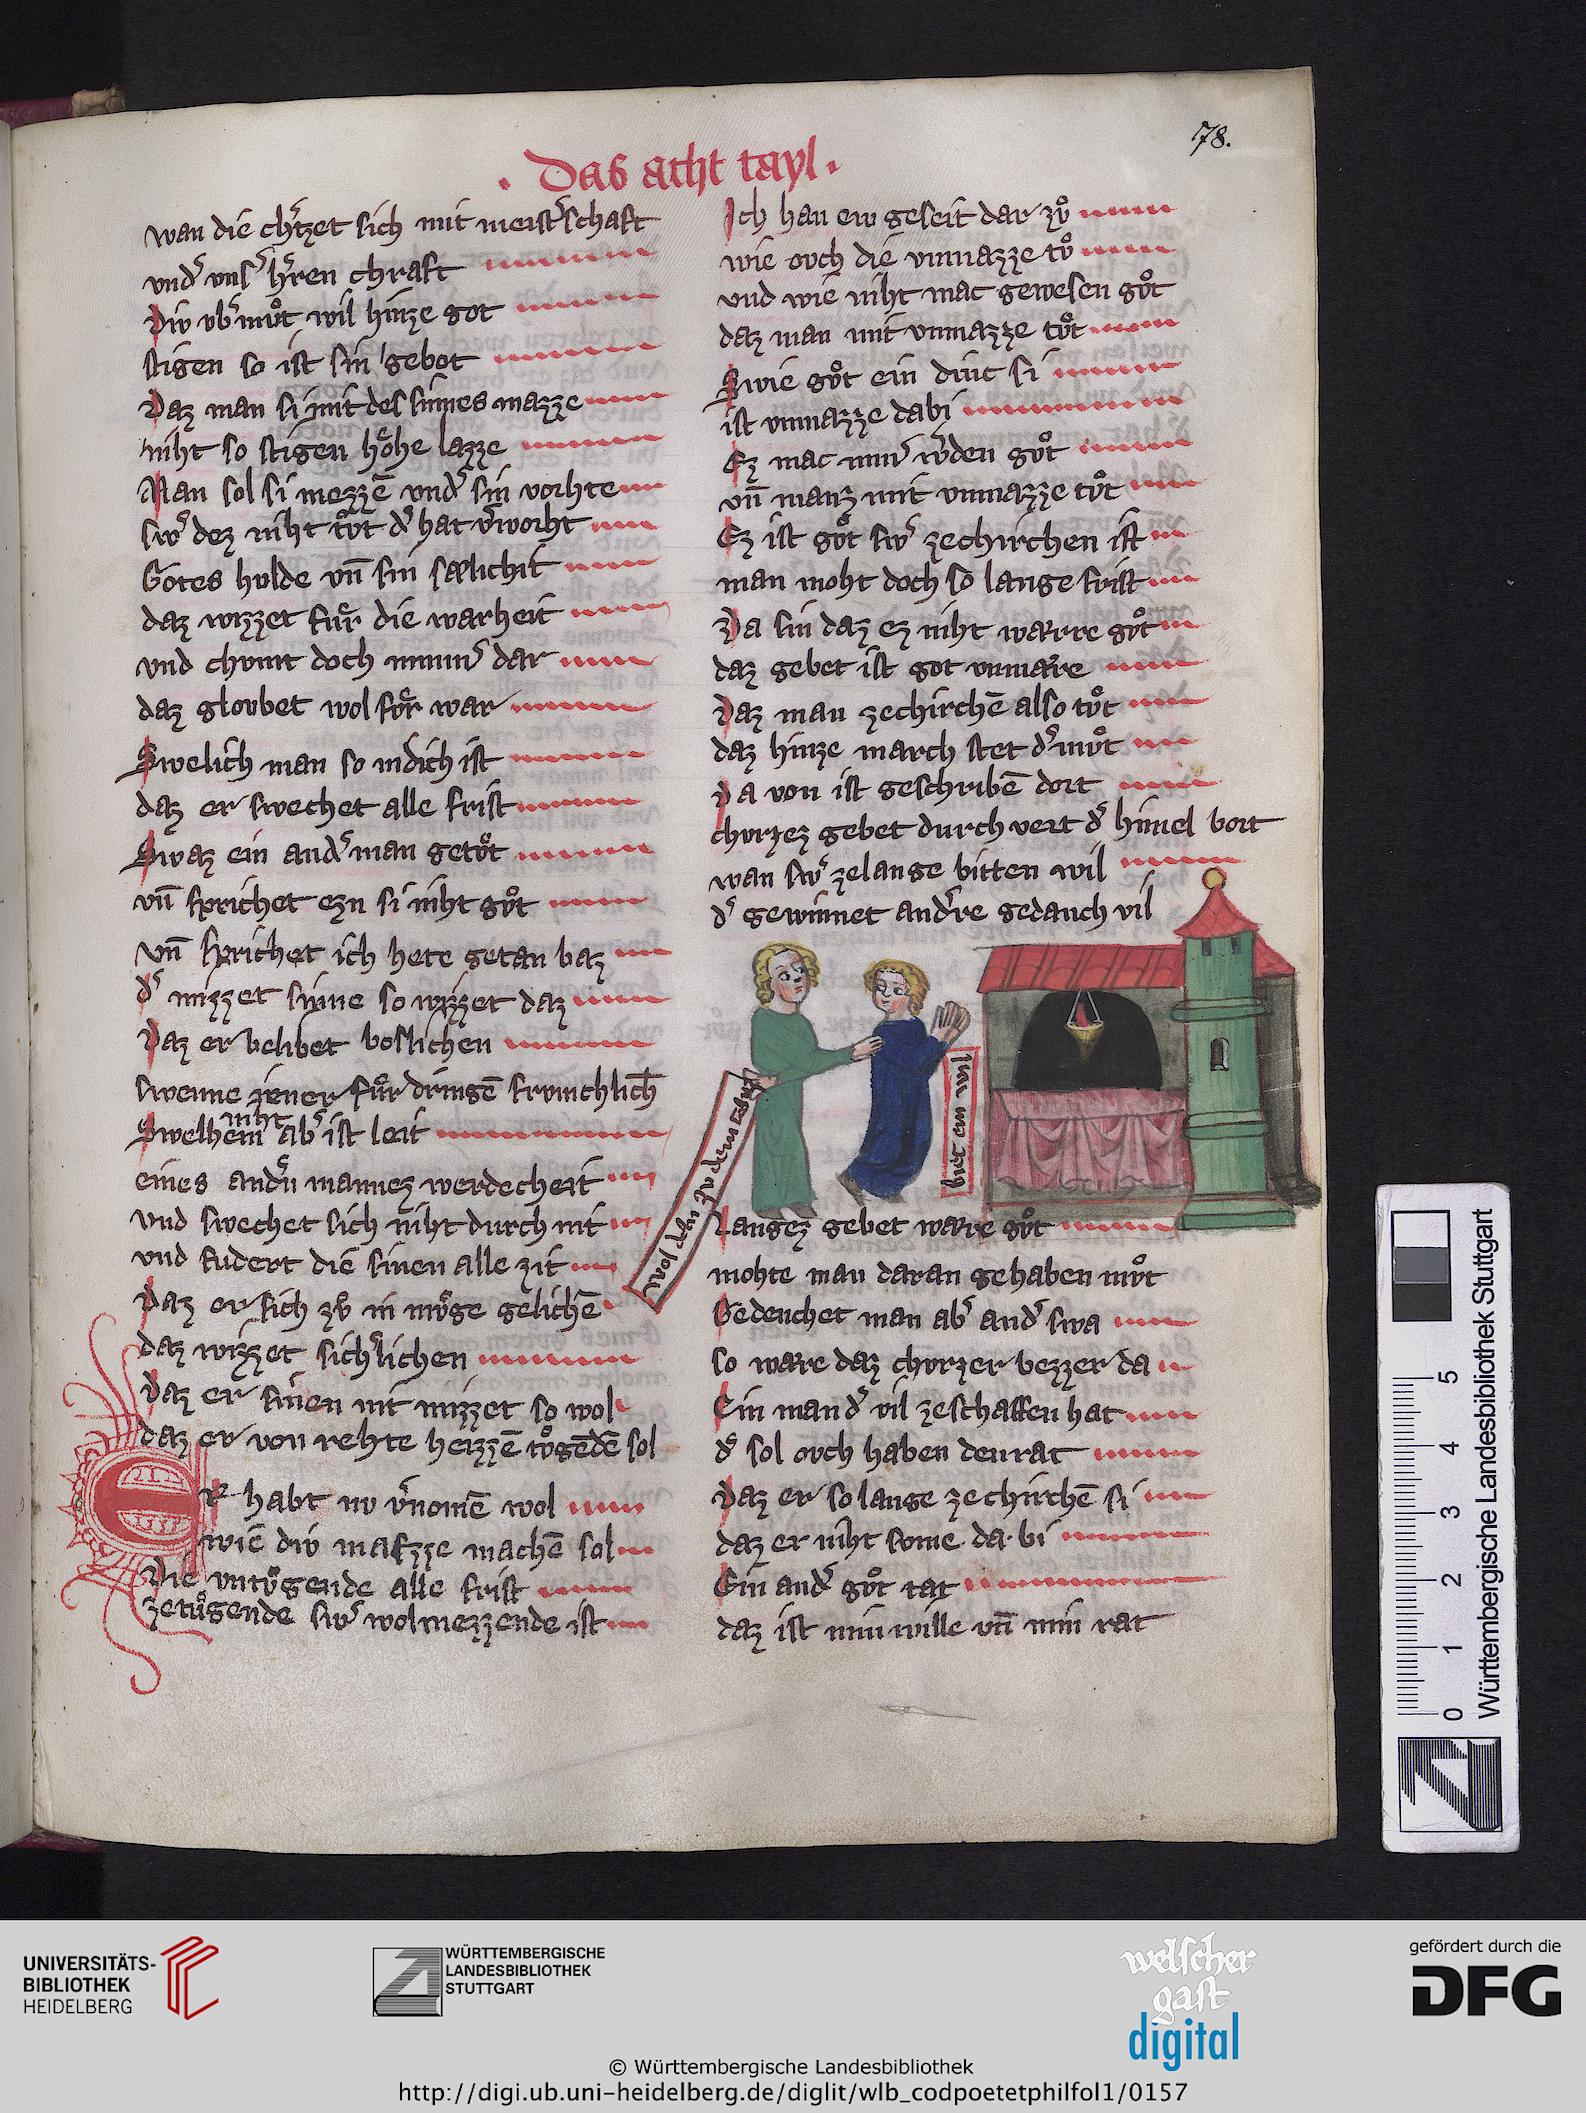 78.
· Das acht tayl ·
wan die ch͛tzet sich mit meist͛schaft
vnd͛ vns͛ h͛ren chraft
Div vb͛mvͦt wil hinze got
stigen so ist sin gebot
Daz man si mit des sinnes mazze
niht so stigen hoͤhe lazze
Man sol si mezzē vnd͛ sin vorhte
sw͛ dez niht tvͦt d͛ hat v͛worht
Gotes hvlde vn̄ sin sælichit
daz wizzet fvͤr die warheit
vnd chvmt doch nimm͛ dar
daz glovbet wol fvͤr war
Swelich man so nidich ist
daz er swechet alle frist
Swaz ein and͛ man getvͦt
vn̄ sprichet ezn si niht gvͦt
vn̄ sprichet ich hete getan baz
d͛ mizzet sinne so wizzet daz
Daz er belibet boslichen
swenne iener fvͤr dringē frvmchlich
Swelhem niht ab͛ ist leit
eines and͛n mannez werdecheit
vnd swechet sich niht durch nit
vnd fudert die sinen alle zit
Daz er sich zvͦ in mvͤge gelichē
daz wizzet sich͛lichen
Daz er sinen nit mizzet so wol
daz er von rehte heizzē tvͦgēdē sol
Er habt nv v͛nomē wol
wie div mazze machē sol
Die vntvͦgende alle frist
zetvͤgende sw͛ wol mezzende ist
Ich han ew geseit dar zvͦ
wie ovch die vnmazze tvͦ
vnd wie niht mac gewesen gvͦt
daz man mit vnmazze tvͦt
Swie gvͦt ein dinc si
ist vnmazze dabi
Ez mac nim͛ w͛den gvͦt
vn̄ manz mit vnmazze tvͦt
Ez ist gvͦt sw͛ zechirchen ist
man moht doch so lange frist
Da sin daz ez niht wærre gvͦt
daz gebet ist got vnmære
Daz man zechirchē also tvͦt
daz hinze march stet d͛ mvͦt
Da von ist geschribē dort
chvrzez gebet durch vert d͛ himel bort
wan sw͛ zelange bitten wil
d͛ gewinnet and͛re gedanch vil
Langez gebet wære gvͦt
mohte man daran gehaben mvͦt
Gedenchet man ab͛ and͛ swa
so wære daz chvrzer bezzer da
Ein man d͛ vil zeschaffen hat
dͤ sol ovch haben den rat
Daz er so lange zechirchē si
daz er niht svme da bi
Ein and͛ gvͦt tat
daz ist min wille vn̄ min rat
0 1 2 3 4 5
Württembergische Landesbibliothek Stuttgart
UNIVERSITÄTS-
BIBLIOTHEK
HEIDELBERG
WÜRTTEMBERGISCHE
LANDESBIBLIOTHEK
STUTTGART
welscher
gast
digital
gefördert durch die
DFG
© Württembergische Landesbibliothek
http://digi.ub.uni-heidelberg.de/diglit/wlb_codpoetetphilfol1/0157